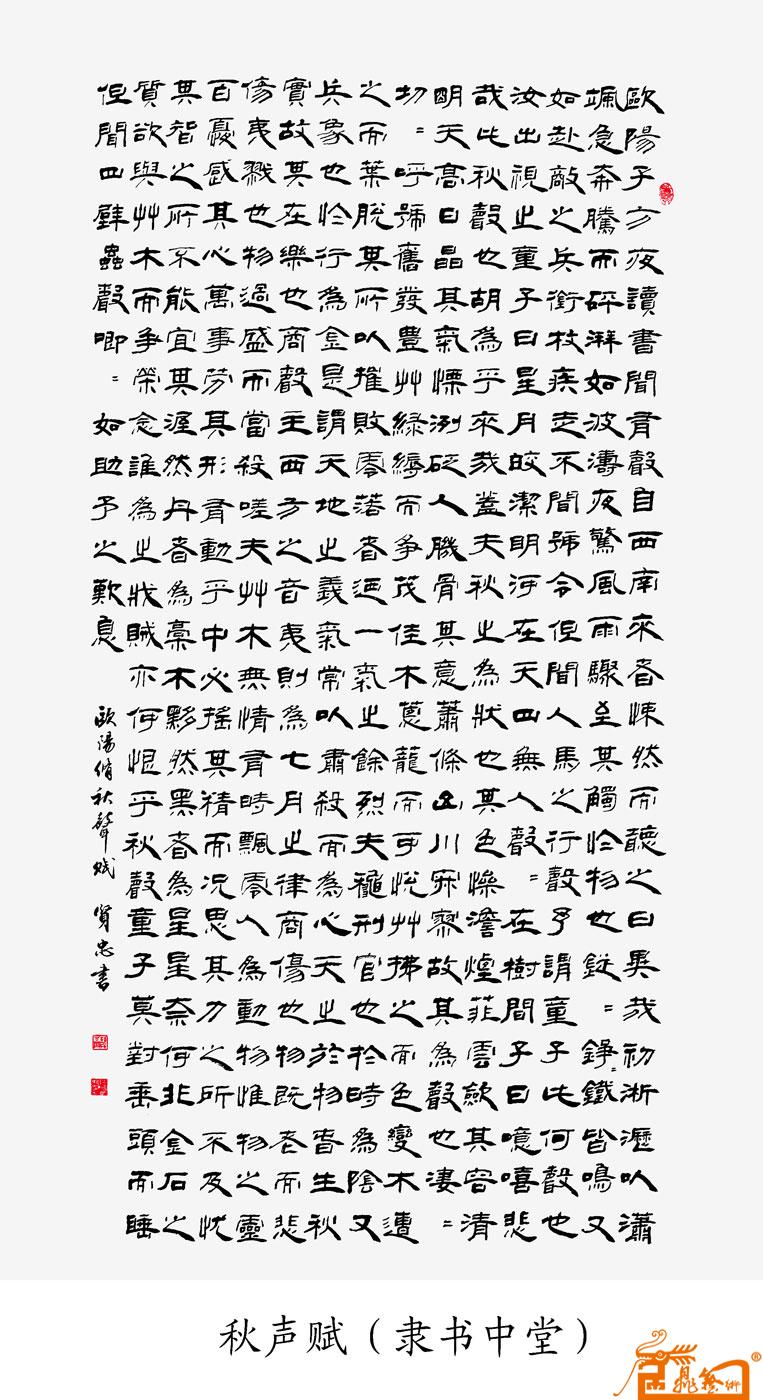 歐陽子方夜讀書聞有聲自西南來者悚然而聽之曰異哉初淅瀝以瀟
颯急奔騰而砰湃如波濤夜驚風雨驟至其觸於物也鏦=錚=鐵皆鳴又
如赴敵之兵銜枚疾走不聞號令但聞人馬之行聲予謂童子此何聲也
汝出視之童子曰星月皎潔明河在天四無人聲=在樹間予曰噫嘻悲
哉此秋聲也胡為乎來哉蓋夫秋之為狀也其色慘澹煙霏雲斂其容清
明天高日晶其氣慄冽砭人肌骨其意蕭條山川寂寥故其為聲也淒=
切=呼號舊發豐草綠縟而爭茂佳木蔥蘢而可悅草拂之而色變木遭
之而葉脫其所以摧敗零落者迺一氣之餘烈夫穐刑官也於時為陰又
兵象也於行為金是謂天地之義氣常以肅殺而為心天之於物春生秋
實故其在樂也商聲主西方之音夷則為七月之律商傷也物既老而悲
傷夷戮也物過盛而當殺嗟夫草木無情有時飄零人為動物惟物之靈
百憂感其心萬事勞其形有動乎中必搖其精而況思其力之所不及忧
其智之所不能宜其渥然丹者為槁木黟然黑者為星星奈何非金石之
質欲與草木而爭榮念誰為之戕賊亦何恨乎秋聲童子莫對垂頭而睡
但聞四壁蟲聲唧=如助予之歎息
歐陽脩秋聲賦 賢忠書
秋声赋（隶书中堂）